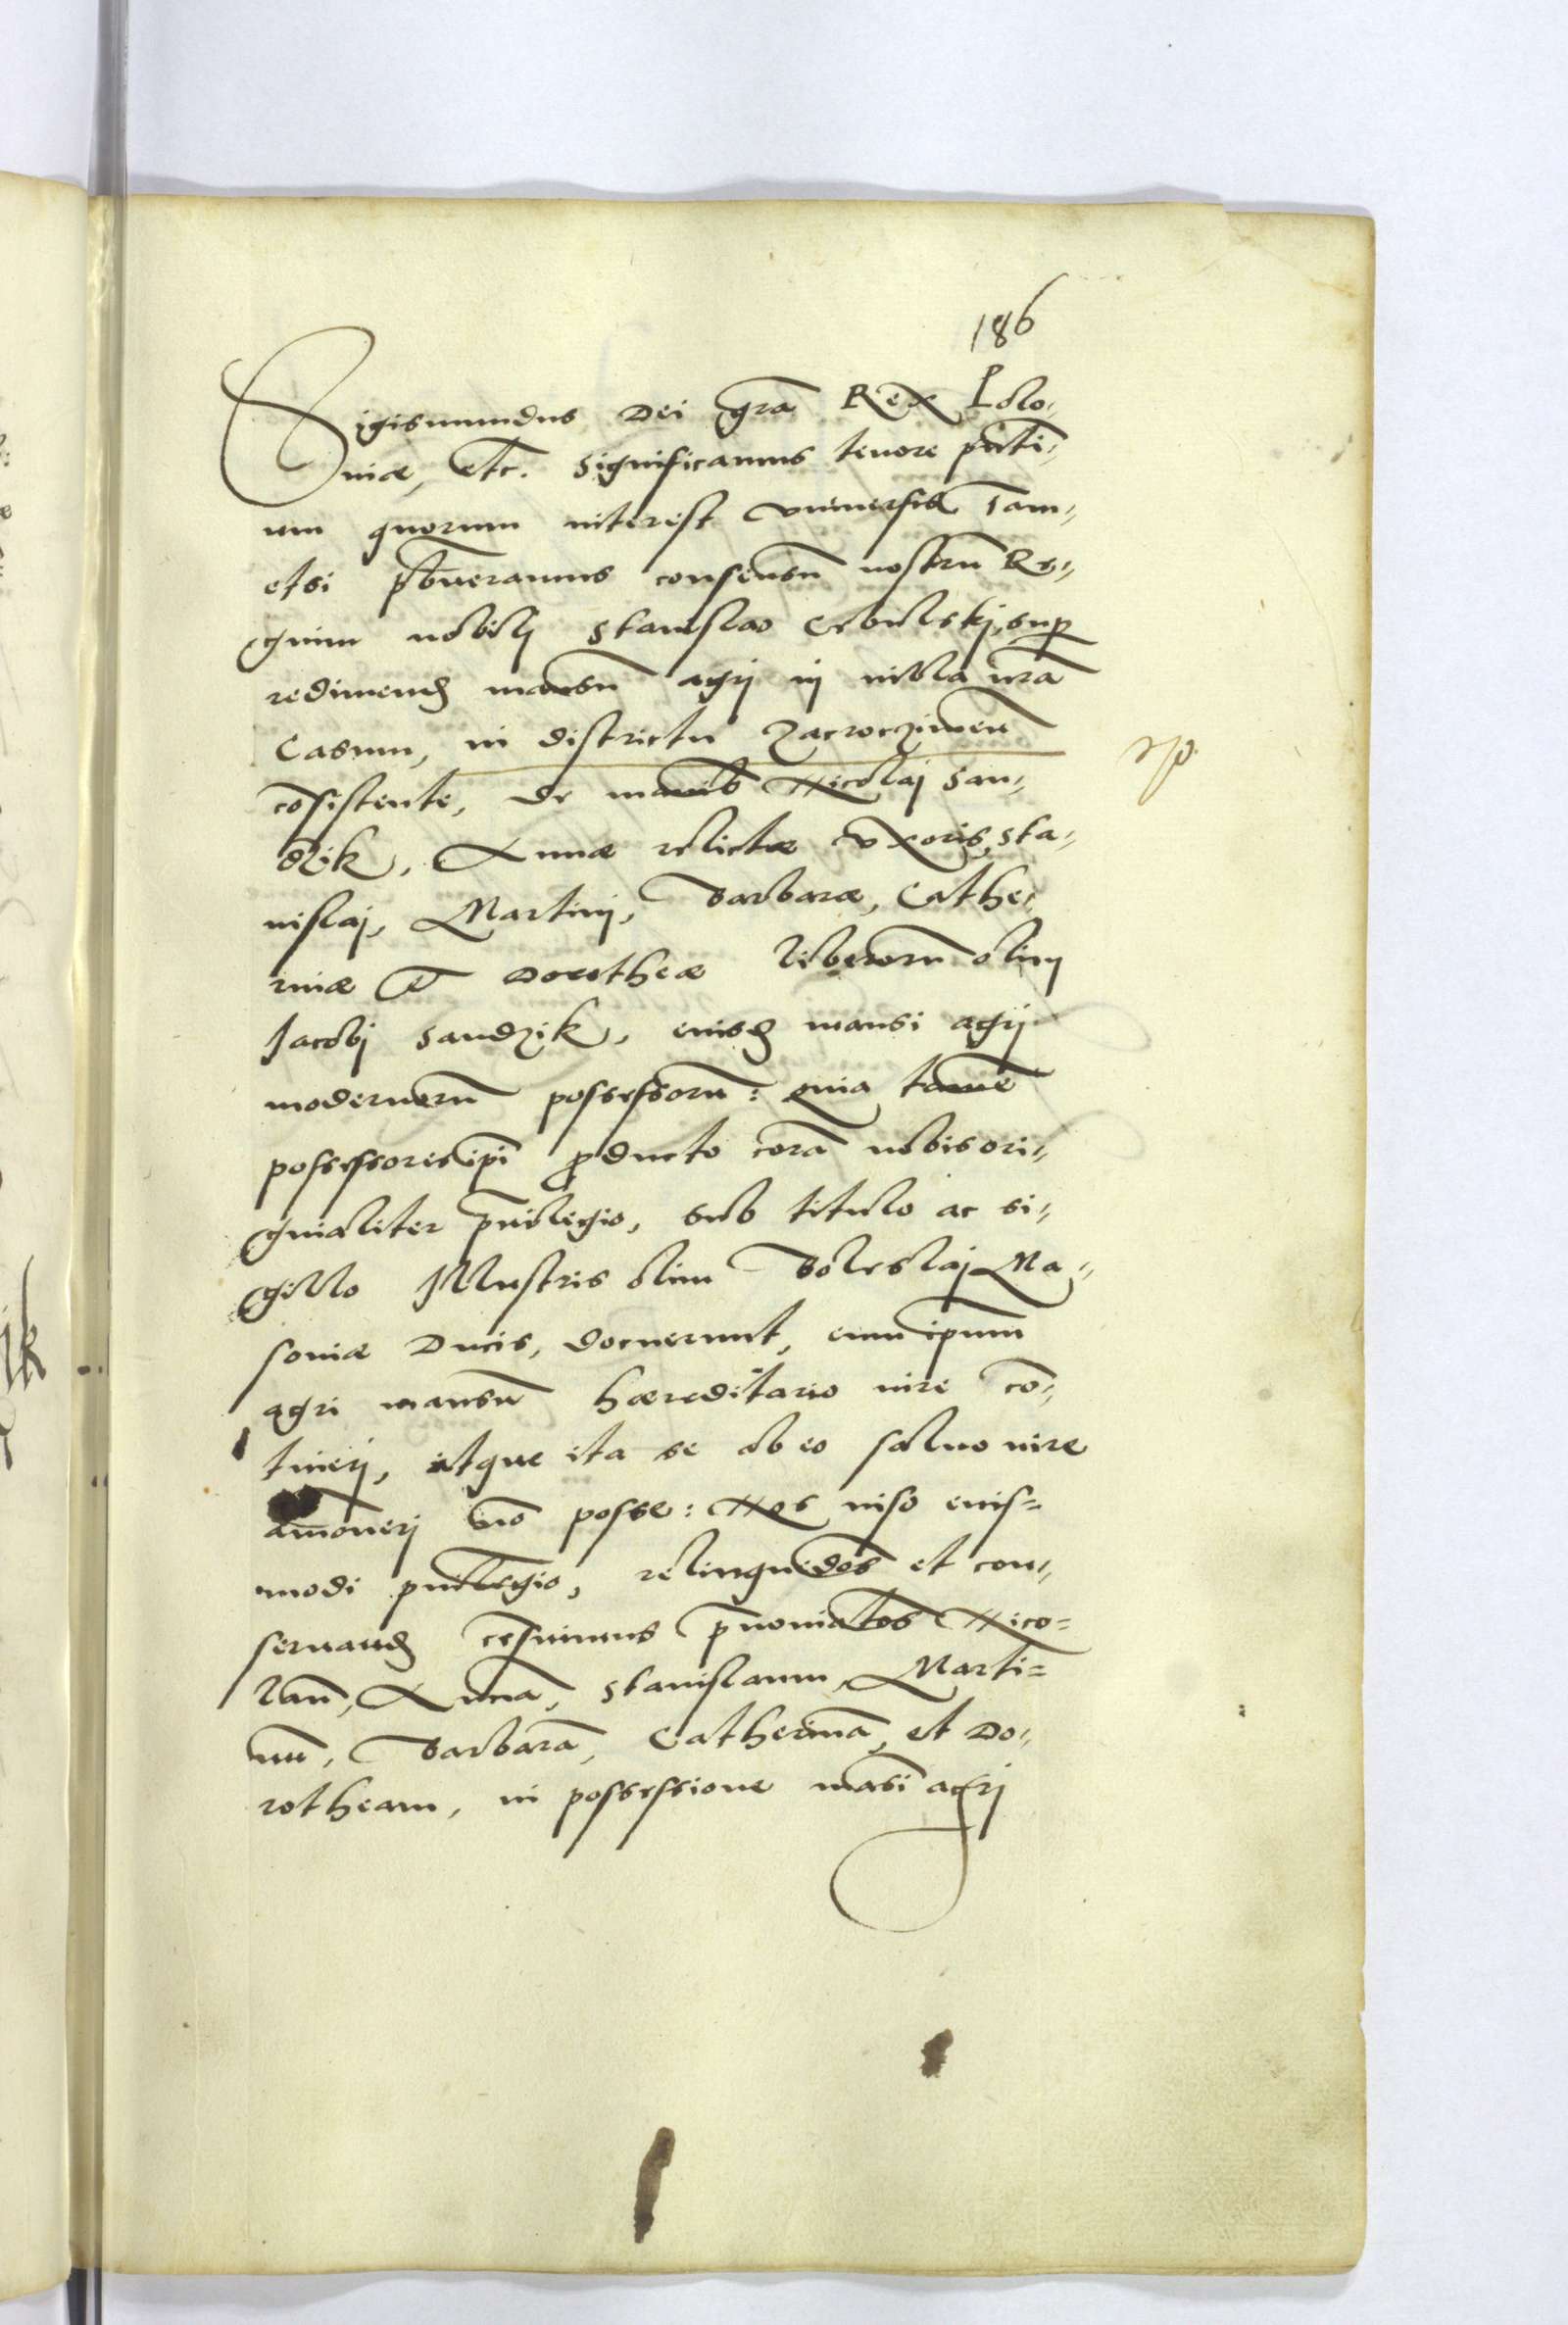 186
Sigismundus Dei gra̅ Rex Polo„
niæ, etc. Significamus tenore pn̄ti„
um quorum interest vniuersis Tam„
etsi p̄bueramus consensū nostrū Re„
gium nobilj Stanislao Cebulskj, sup
redimend̨ mansū agrj in villa nr̄a
Casum, in districtu Zacroczimen̄
cōsistente, de manib Nicolaj San„
dzik, Annæ relictæ vxoris, Sta„
nislaj, Martinj, Barbaræ, Cathe„
rinæ et Dorotheæ liberorū olim
Jacobj Sandzik, eiusd̨ mansi agrj
modernorū possessorū: quia tamē
possessores ip̄i producto corā nobis ori„
ginaliter p̄uilegio, sub titulo ac si„
gillo Illustris olim Boleslaj Ma„
soviæ Ducis, docuerunt, eum ip̄um
agri mansū hæreditario iure cō„
tinerj, atque ita se ab eo saluo iure
amouerj nō posse: Nos viso eius=
modi p̄uilegio, relinquēdos et con„
seruand̨ cēsuimus p̄nominatos Nico=
laū, Annā, Stanislaum, Marti=
nū, Barbarā, Catherinā, et Do„
rotheam, in possessione māsi agrj